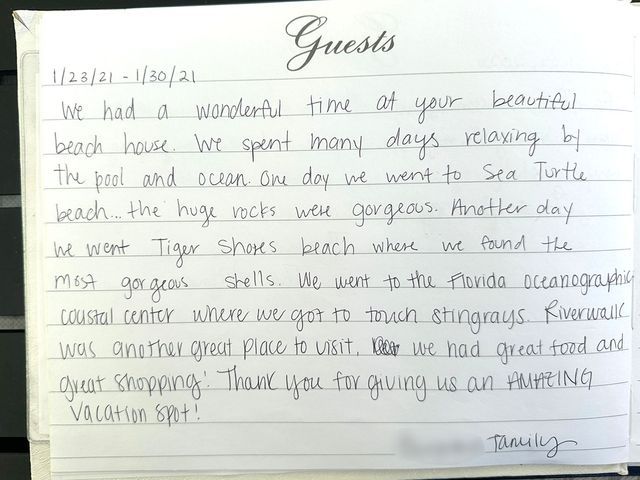 Guests
1/23/21 - 1/30/21
We had a wonderful time at your beautiful
beach house. We spent many days relaxing by
the pool and ocean. One day we went to Sea Turtle
beach... the huge rocks were gorgeous. Another day
we went Tiger Shores beach where we found the
most gorgeous shells. We went to the Florida oceanographic
coastal center where we got to touch stingrays. Riverwalk
was another great place to visit, we had great food and
great shopping! Thank you for giving us an AMAZING
vacation spot!
Family